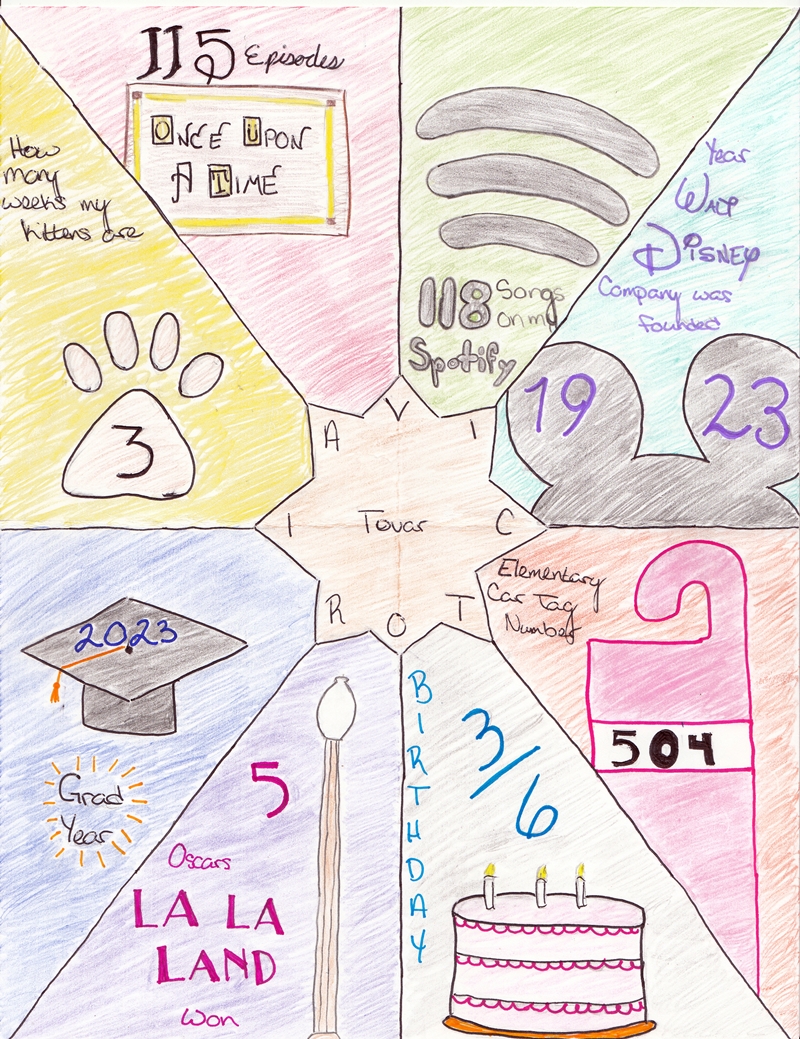 115 Episodes
ONCE UPON
A TIME
118 Songs
on my
Spotify
Year
WALT
DISNEY
Company was
founded
19 23
Elementary
Car Tag
Number
504
BIRTHDAY
3/6
5
Oscars
LA LA
LAND
won
2023
Grad
Year
How
many
weeks my
kittens are
3
VICTORIA
Tovar